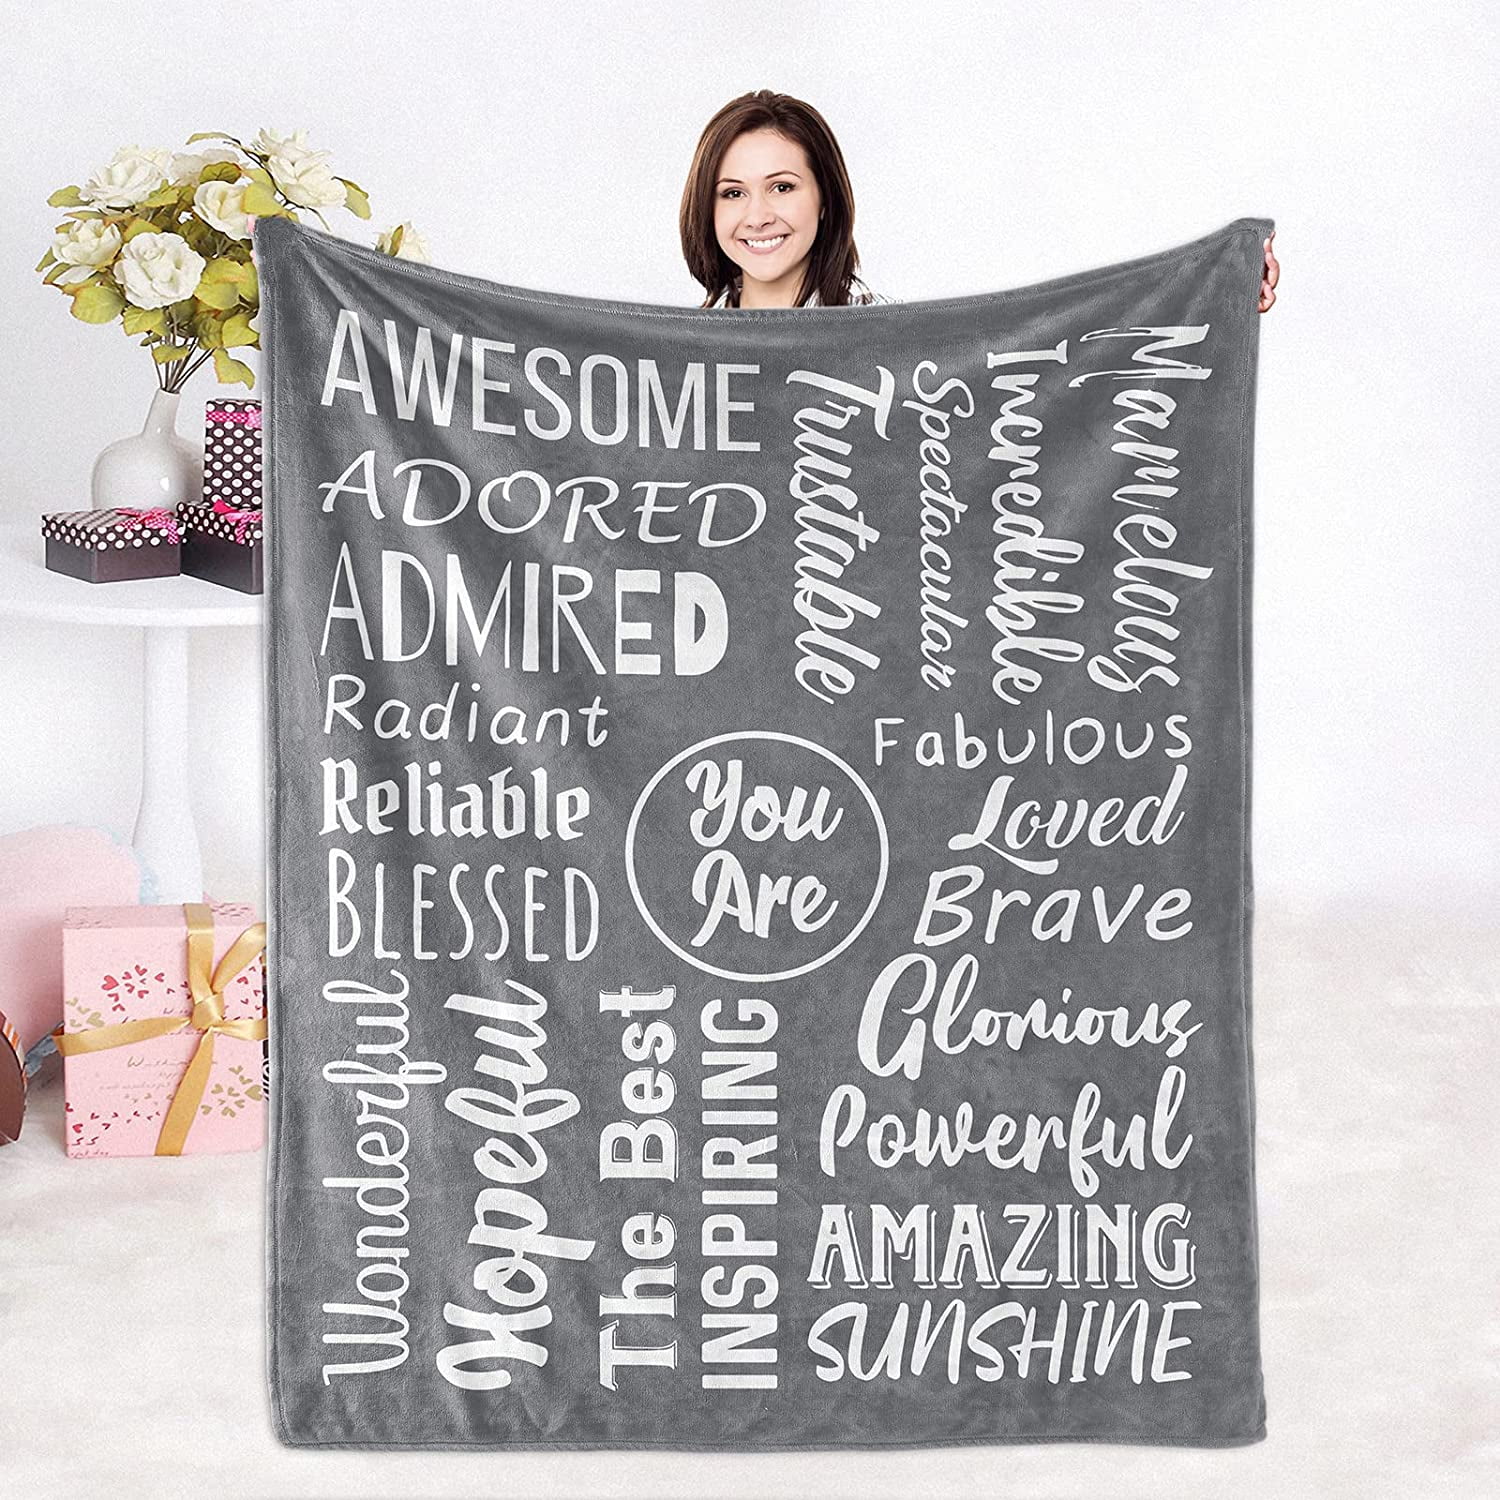 AWESOME
ADORED
ADMIRED
Radiant
Reliable
BLESSED
Trustable
Spectacular
Incredible
Marvelous
You
Are
Fabulous
Loved
Brave
Glorious
Powerful
AMAZING
SUNSHINE
Wonderful
Hopeful
The Best
INSPIRING